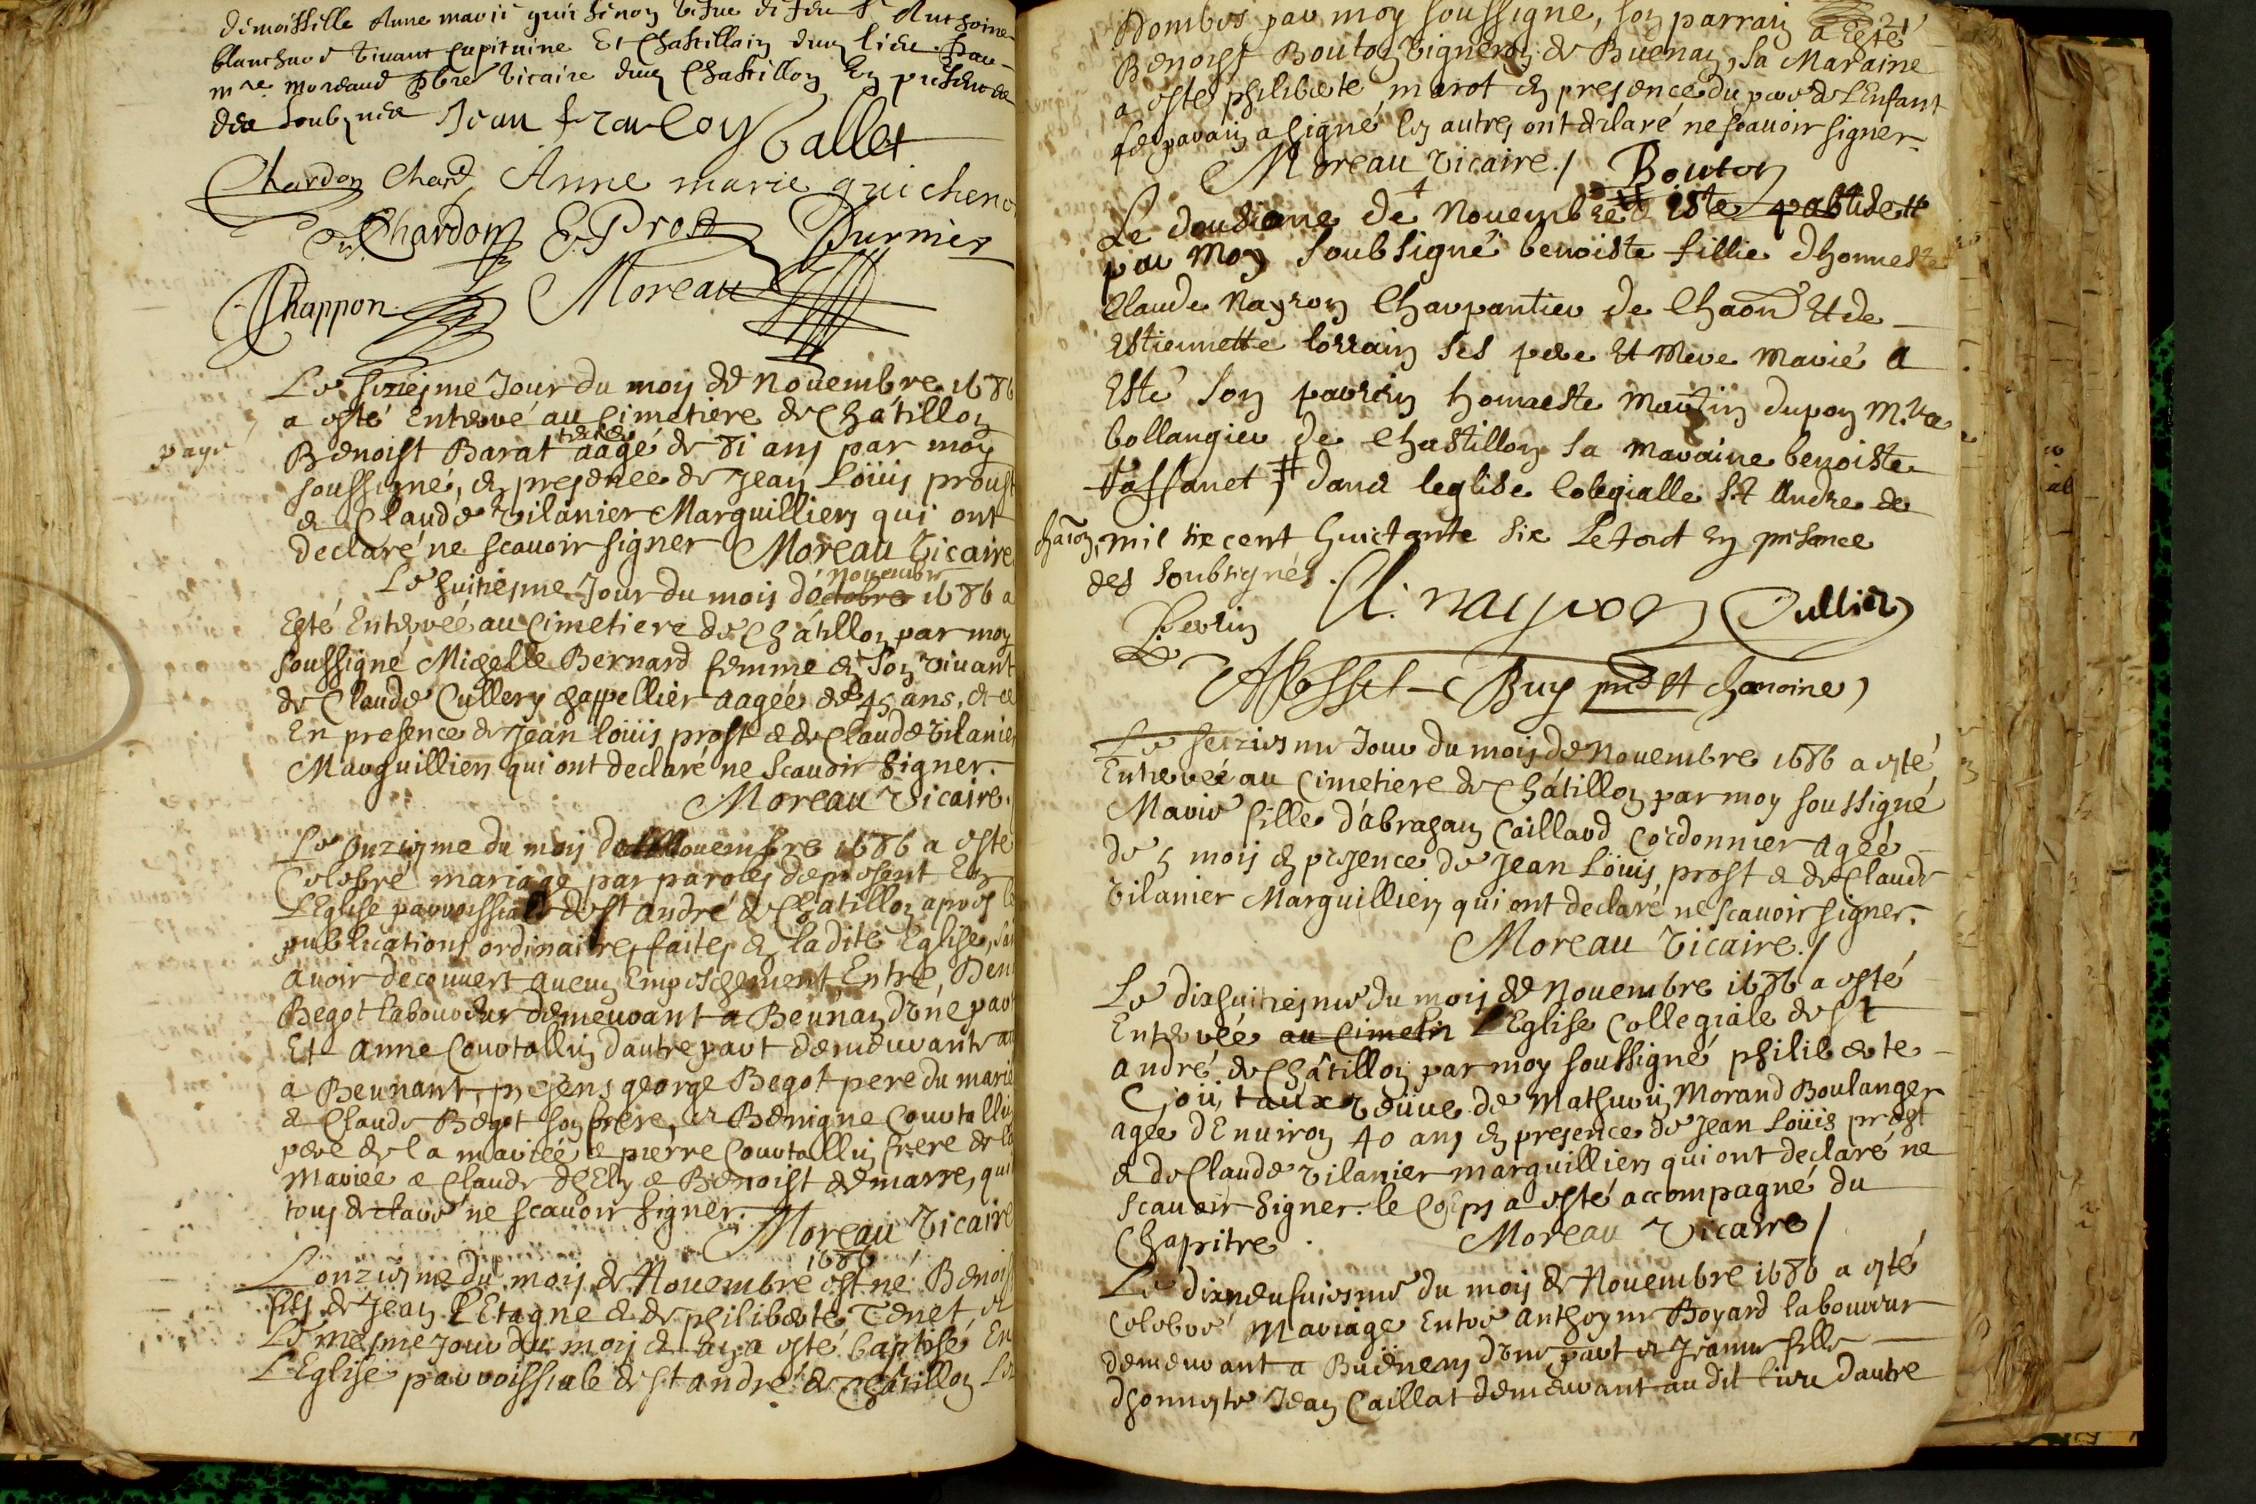 demoiselle Anne marie guichenon vefue de feu Sr Anthoine
blanchard vivant Capitaine Et Chastellain dud lieu par
mre moreaud pbre vicaire dud Chastillon En presence
des soubznes Jean francoy Vallet
Chardon Chard Anne marie guicheno
Chardon E. Prost Durnier
Chappon Moreau
Le sixiesme Jour du moys de Nouembre 1686
a esté Enterré au Cimetiere de Châtillon
payé
Benoist Barat aagé de 81 ans par moy
soussigné, en presence de Jean Loüis proust
& Claude Vilanier Marguilliers qui ont
declaré ne scauoir signer Moreau Vicaire
nouembre
Le huitiesme Jour du mois doctobre 1686 a
Esté Enterrée au Cimetiere de Châtillon par moy
soussigné Michelle Bernard femme en son viuant
de Claude Cullery chappellier aagée de 45 ans, & ce
En presence de Jean loüis prost & de Claude Vilanier
Marguilliers qui ont declaré ne Scauoir Signer.
Moreau Vicaire.
Le Onziesme du mois de Nouembre 1686 a esté
Celebré mariage par paroles de present En
L'Eglise parroissiale de st andré de Châtillon apres le
publications ordinaires faites en ladite Eglise, san
auoir decouuert aucun Empeschement Entre, Beni
Begot laboureur demeurant a Beunan d'une part
Et anne Courtallin d'autre part demeurante au
a Beunant, presens george Begot pere du marié
& Claude Begot son frere, & Benigne Courtallin
pere de la mariée & pierre Courtallin frere de la
Mariée & Claude & Benoist demarre, qui
tous declaré ne scauoir signer. Moreau Vicaire
1686
L'onziesme du mois de Nouembre est né Benoist
fils de Jean L'Etagne & de philiberte Tenet &
Le mesme jour du mois & an a esté baptisé En
L'Eglise parroissiale de st andré de Châtillon Les
21
Dombes par moy soussigne, son parrain a esté
Benoist Bouton Vigneron de Buenan, sa Maraine
a esté philiberte marot en presence du pere de L'Enfant
le parain a signé les autres ont declaré ne scauoir signer.
Moreau Vicaire./ Bouton
Le douzieme de Nouembre a este baptisett
par Moy Soubsigné benoiste fillie dhonneste
Claude Nayron Charpantier de Chaon Et de
Estiennette lorrain ses pere Et Mere Marié a
Esté son parrin honneste Martin dupon M.re
bollangier de Chastillon sa Maraine benoiste
tassanet, # dans leglise Colegialle St Andre de
chaōn, mil six cent huictante six Le tout En presance
des Soubsignés.
Perrin Cl. nayron Cullier
Assesset Buy pnt St chanoine
Le seiziesme Jour du mois de Nouembre 1686 a esté
Enterrée au Cimetiere de Châtillon par moy soussigné
Marie fille d'abraham Caillard Cordonnier agée
de 5 mois en presence de Jean Loüis prost & de Claude
Vilanier Marguilliers qui ont declaré ne scauoir signer.
Moreau Vicaire./
Le dixhuitiesme du mois de Nouembre 1686 a esté
Enterrée au Cimetir L'Eglise Collegiale de st
andré de Châtillon par moy soussigné philiberte
Goüi, taux veüue de Mathurin Morand Boulanger
agée d'Enuiron 40 ans en presence de Jean Loüis prost
& de Claude Vilanier marguilliers qui ont declaré ne
Scauoir Signer. le Corps a esté accompagné du
Chapitre. Moreau Vicaire/
Le dixneufuiesme du mois de Nouembre 1686 a esté
Celebré Mariage Entre anthoyne Boyard laboureur
demeurant a Buenens d'une part & Jeanne fille
d'honneste Jean Caillat demeurant au dit lieu d'autre